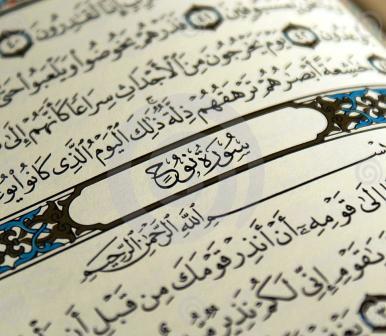 إنا لقدرون ٤٠
بمسبوقين ٤١ فذرهم يخوضوا ويلعبوا حتى
٤٢ يوم يخرجون من الأجداث سراعا كأنهم إلى
٤٣ خشعة أبصرهم ترهقهم ذلة ذلك اليوم الذي كانوا يوعدون
سورة نوح
الله الرحمن الرحيم
إلى قومه أن أنذر قومك من قبل أن
يقوم إني لكم نذير